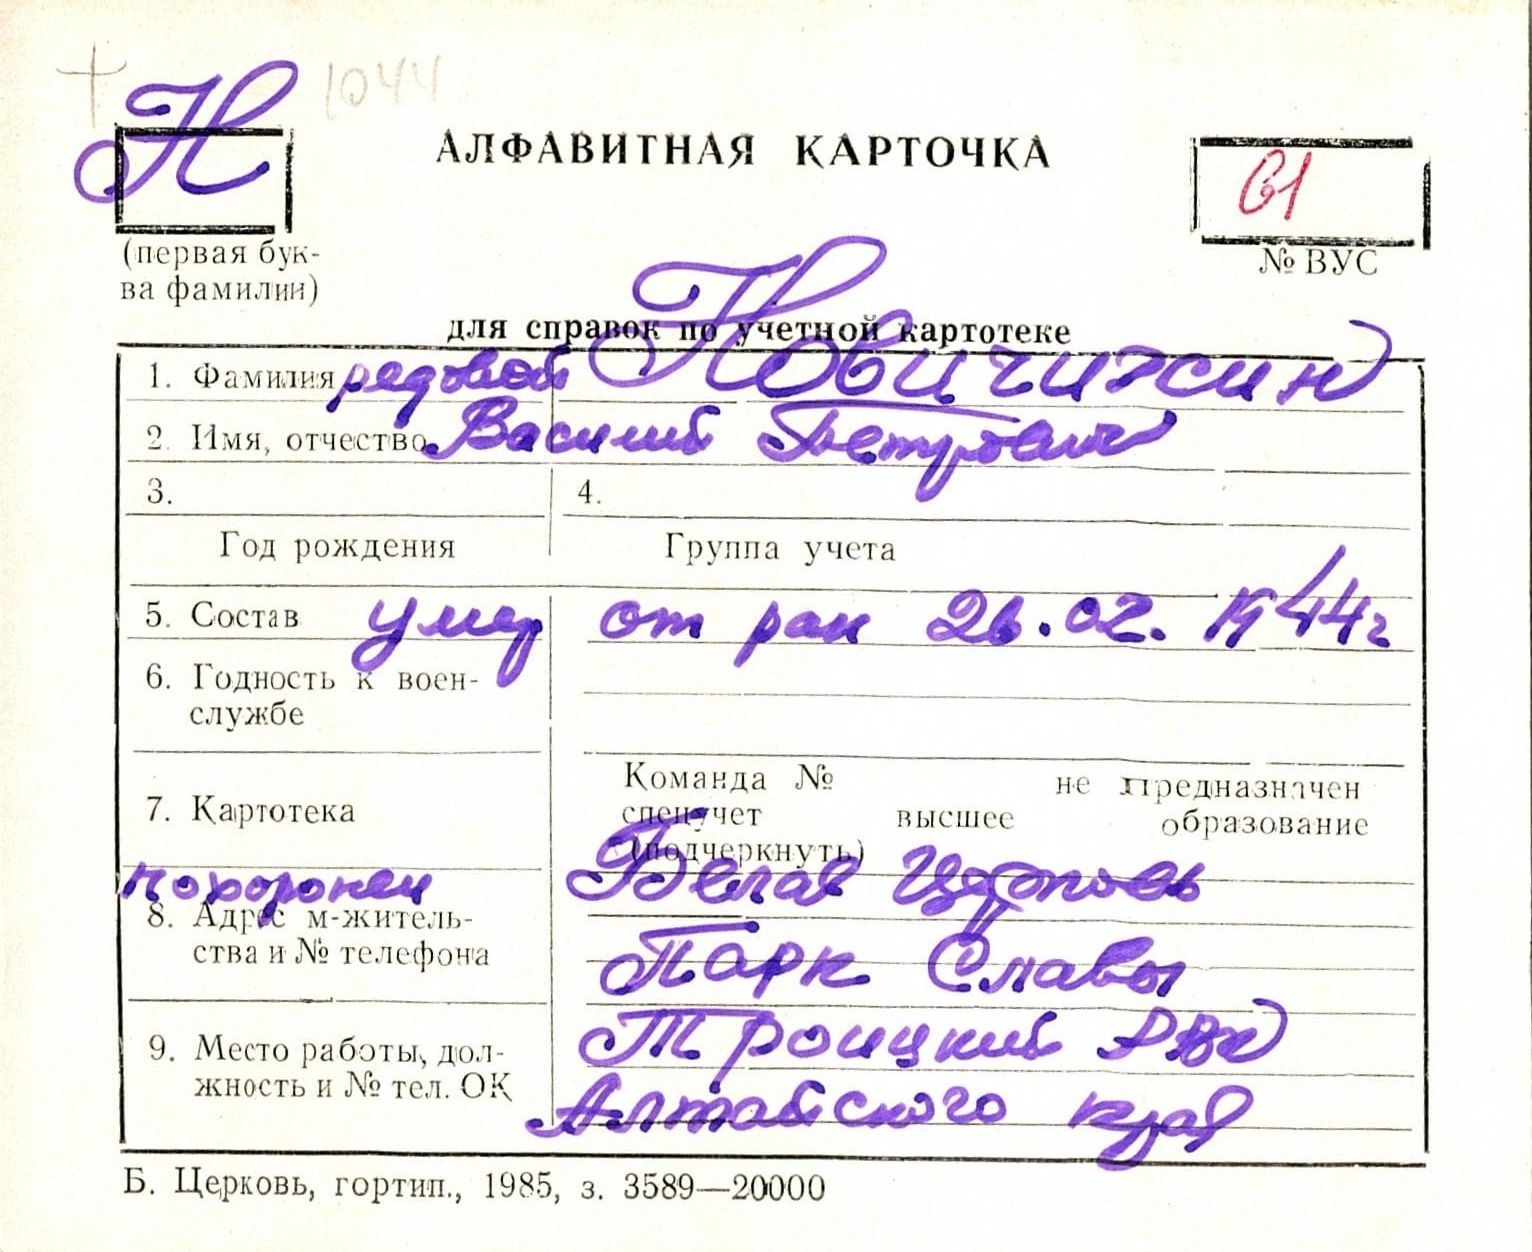 Н 1044
АЛФАВИТНАЯ КАРТОЧКА
61
(первая бук-
ва фамилии)
№ ВУС
для справок по учетной картотеке
1. Фамилия рядовой Новичихин
2. Имя, отчество Василий Петрович
3. 4.
Год рождения Группа учета
5. Состав умер от ран 26.02.1944г
6. Годность к воен-
службе
Команда № не предназначен
7. Картотека спецучет высшее образование
(подчеркнуть)
похоронен Белая Церковь
8. Адрес м-житель-
ства и № телефона Парк Славы
9. Место работы, дол- Троицкий РВК
жность и № тел. ОК Алтайского края
Б. Церковь, гортип., 1985, з. 3589—20000